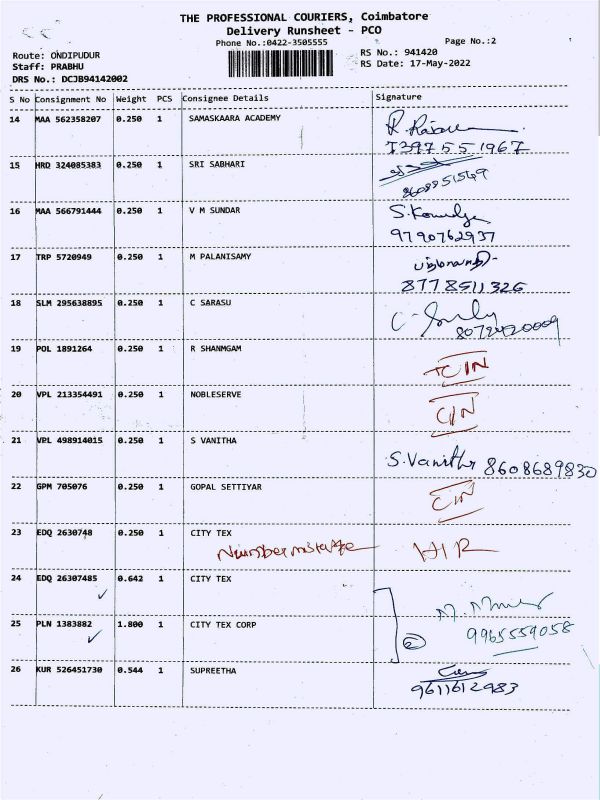 THE PROFESSIONAL COURIERS, Coimbatore
Delivery Runsheet - PCO
Phone No.:0422-3505555
Page No.:2
Route: ONDIPUDUR
RS No.: 941420
Staff: PRABHU
RS Date: 17-May-2022
DRS No.: DCJB94142002
S No Consignment No Weight PCS Consignee Details Signature
14 MAA 562358207 0.250 1 SAMASKAARA ACADEMY
7397551967
15 HRD 324085383 0.250 1 SRI SABHARI
8608851569
16 MAA 566791444 0.250 1 V M SUNDAR
9790762937
17 TRP 5720949 0.250 1 M PALANISAMY
8778511326
18 SLM 295638895 0.250 1 C SARASU
19 POL 1891264 0.250 1 R SHANMGAM
20 VPL 213354491 0.250 1 NOBLESERVE
CIN
21 VPL 498914015 0.250 1 S VANITHA S.Vanitha 8608689830
22 GPM 705076 0.250 1 GOPAL SETTIYAR
CIN
23 EDQ 2630748 0.250 1 CITY TEX
Number mistake
24 EDQ 26307485 0.642 1 CITY TEX
25 PLN 1383882 1.800 1 CITY TEX CORP 9965559058
26 KUR 526451730 0.544 1 SUPREETHA
9611612983